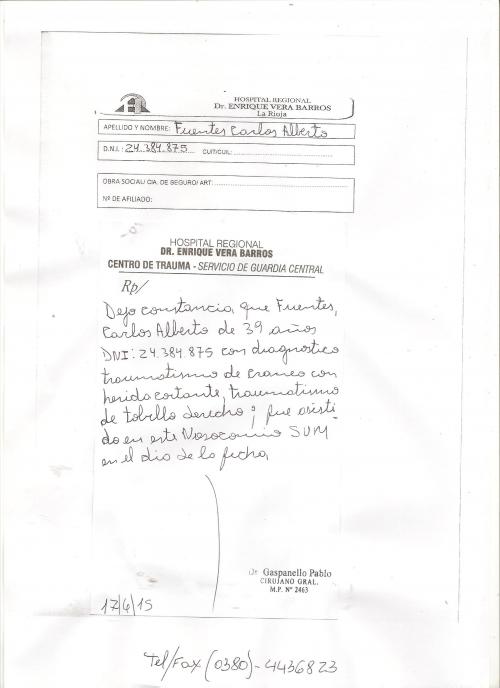 HOSPITAL REGIONAL
Dr. ENRIQUE VERA BARROS
La Rioja
APELLIDO Y NOMBRE: Fuentes Carlos Alberto
D.N.I.: 24.384.875 CUIT/CUIL:
OBRA SOCIAL/ CIA. DE SEGURO/ ART:
Nº DE AFILIADO:
HOSPITAL REGIONAL
DR. ENRIQUE VERA BARROS
CENTRO DE TRAUMA - SERVICIO DE GUARDIA CENTRAL
Rp/
Dejo constancia, que Fuentes,
Carlos Alberto de 39 años
DNI: 24.384.875 con diagnostico
traumatismo de craneo con
herida cortante, traumatismo
de tobillo derecho; fue asisti-
do en este Nosocomio SUM
en el dia de la fecha,
Dr. Gaspanello Pablo
CIRUJANO GRAL.
M.P. Nº 2463
17/4/15
Tel/Fax (0380)-4436823